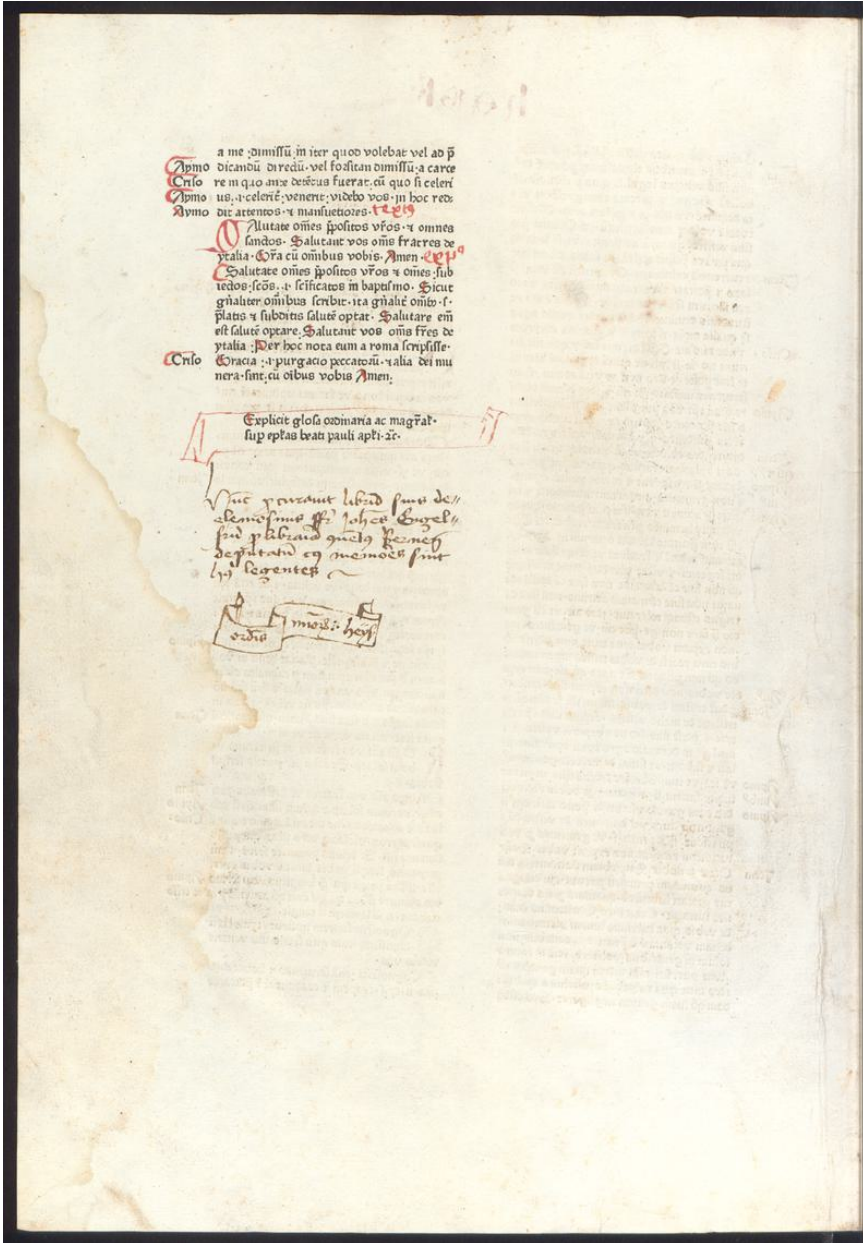 a me ;dimissū; in iter quod volebat vel ad p̄
Aymo dicandū directū· vel forsitan dimissū; a carce
Criso re in quo ante detētus fuerat· cū quo si celeri
Aymo us; ·i· celerit̄; venerit; videbo vos· in hoc red⸗
Aymo dit attentos· ⁊ mansuetiores· textꝰ
SAlutate om̄es p̄positos vr̄os· ⁊ omnes
sanctos· Salutant vos om̄s fratres de
ytalia· Gr̄a cū om̄ibus vobis· Amen· expᵒ
Salutate om̄es p̄positos vr̄os ⁊ om̄es; sub
iectos; scōs· ·i· sc̄ificatos in baptismo· Sicut
gn̄aliter om̄ibus scribit· ita gn̄alit̄ om̄ib·
p̄latis ⁊ subditis salutē optat· Salutare em̄
est salutē optare· Salutant vos om̄s fr̄es de
ytalia ; Per hoc nota eum a roma scripsisse·
Criso Gracia ; ·i· purgacio peccatorū· ⁊ alia dei mu
nera· sint; cū oībus vobis Amen;
Explicit glosa ordinaria ac magr̄al·
suꝑ ep̄las beati pauli apl̄i· ⁊c·
Nūc ꝓcurauit librū suis de
elemosinis Johēs Engel
deputatū memores sint
legentes
ordīs mīorꝝ heys